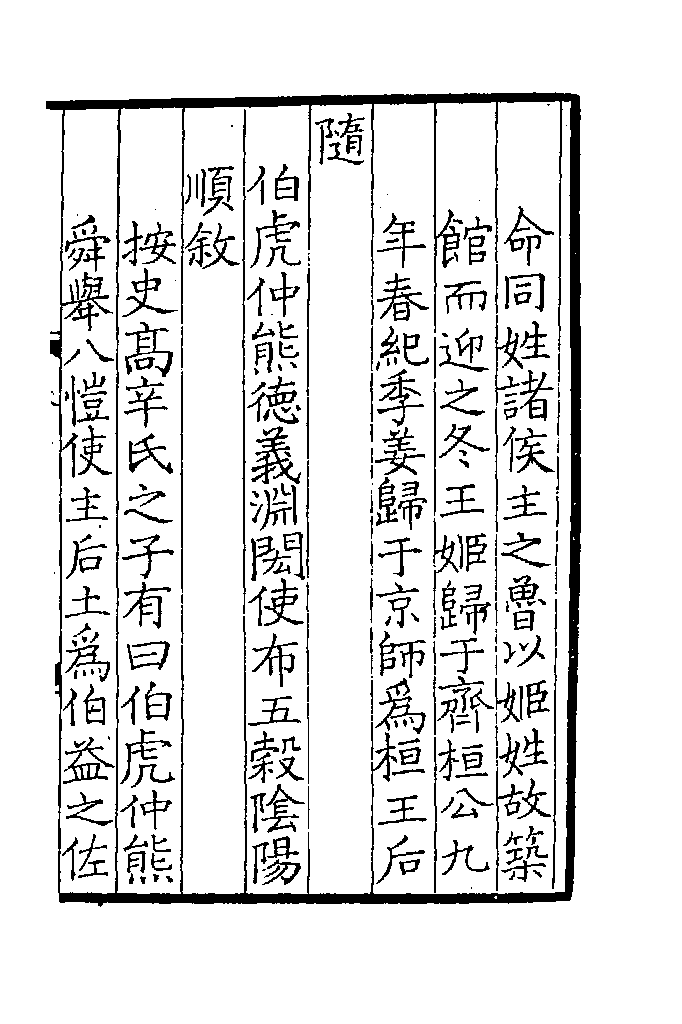 命同姓諸侯主之魯以姬姓故築
館而迎之冬王姬歸于齊桓公九
年春紀季姜歸于京師爲桓王后
隨
伯虎仲熊德義淵閎使布五穀陰陽
順敘
按史高辛氏之子有曰伯虎仲熊
舜舉八愷使主后土爲伯益之佐